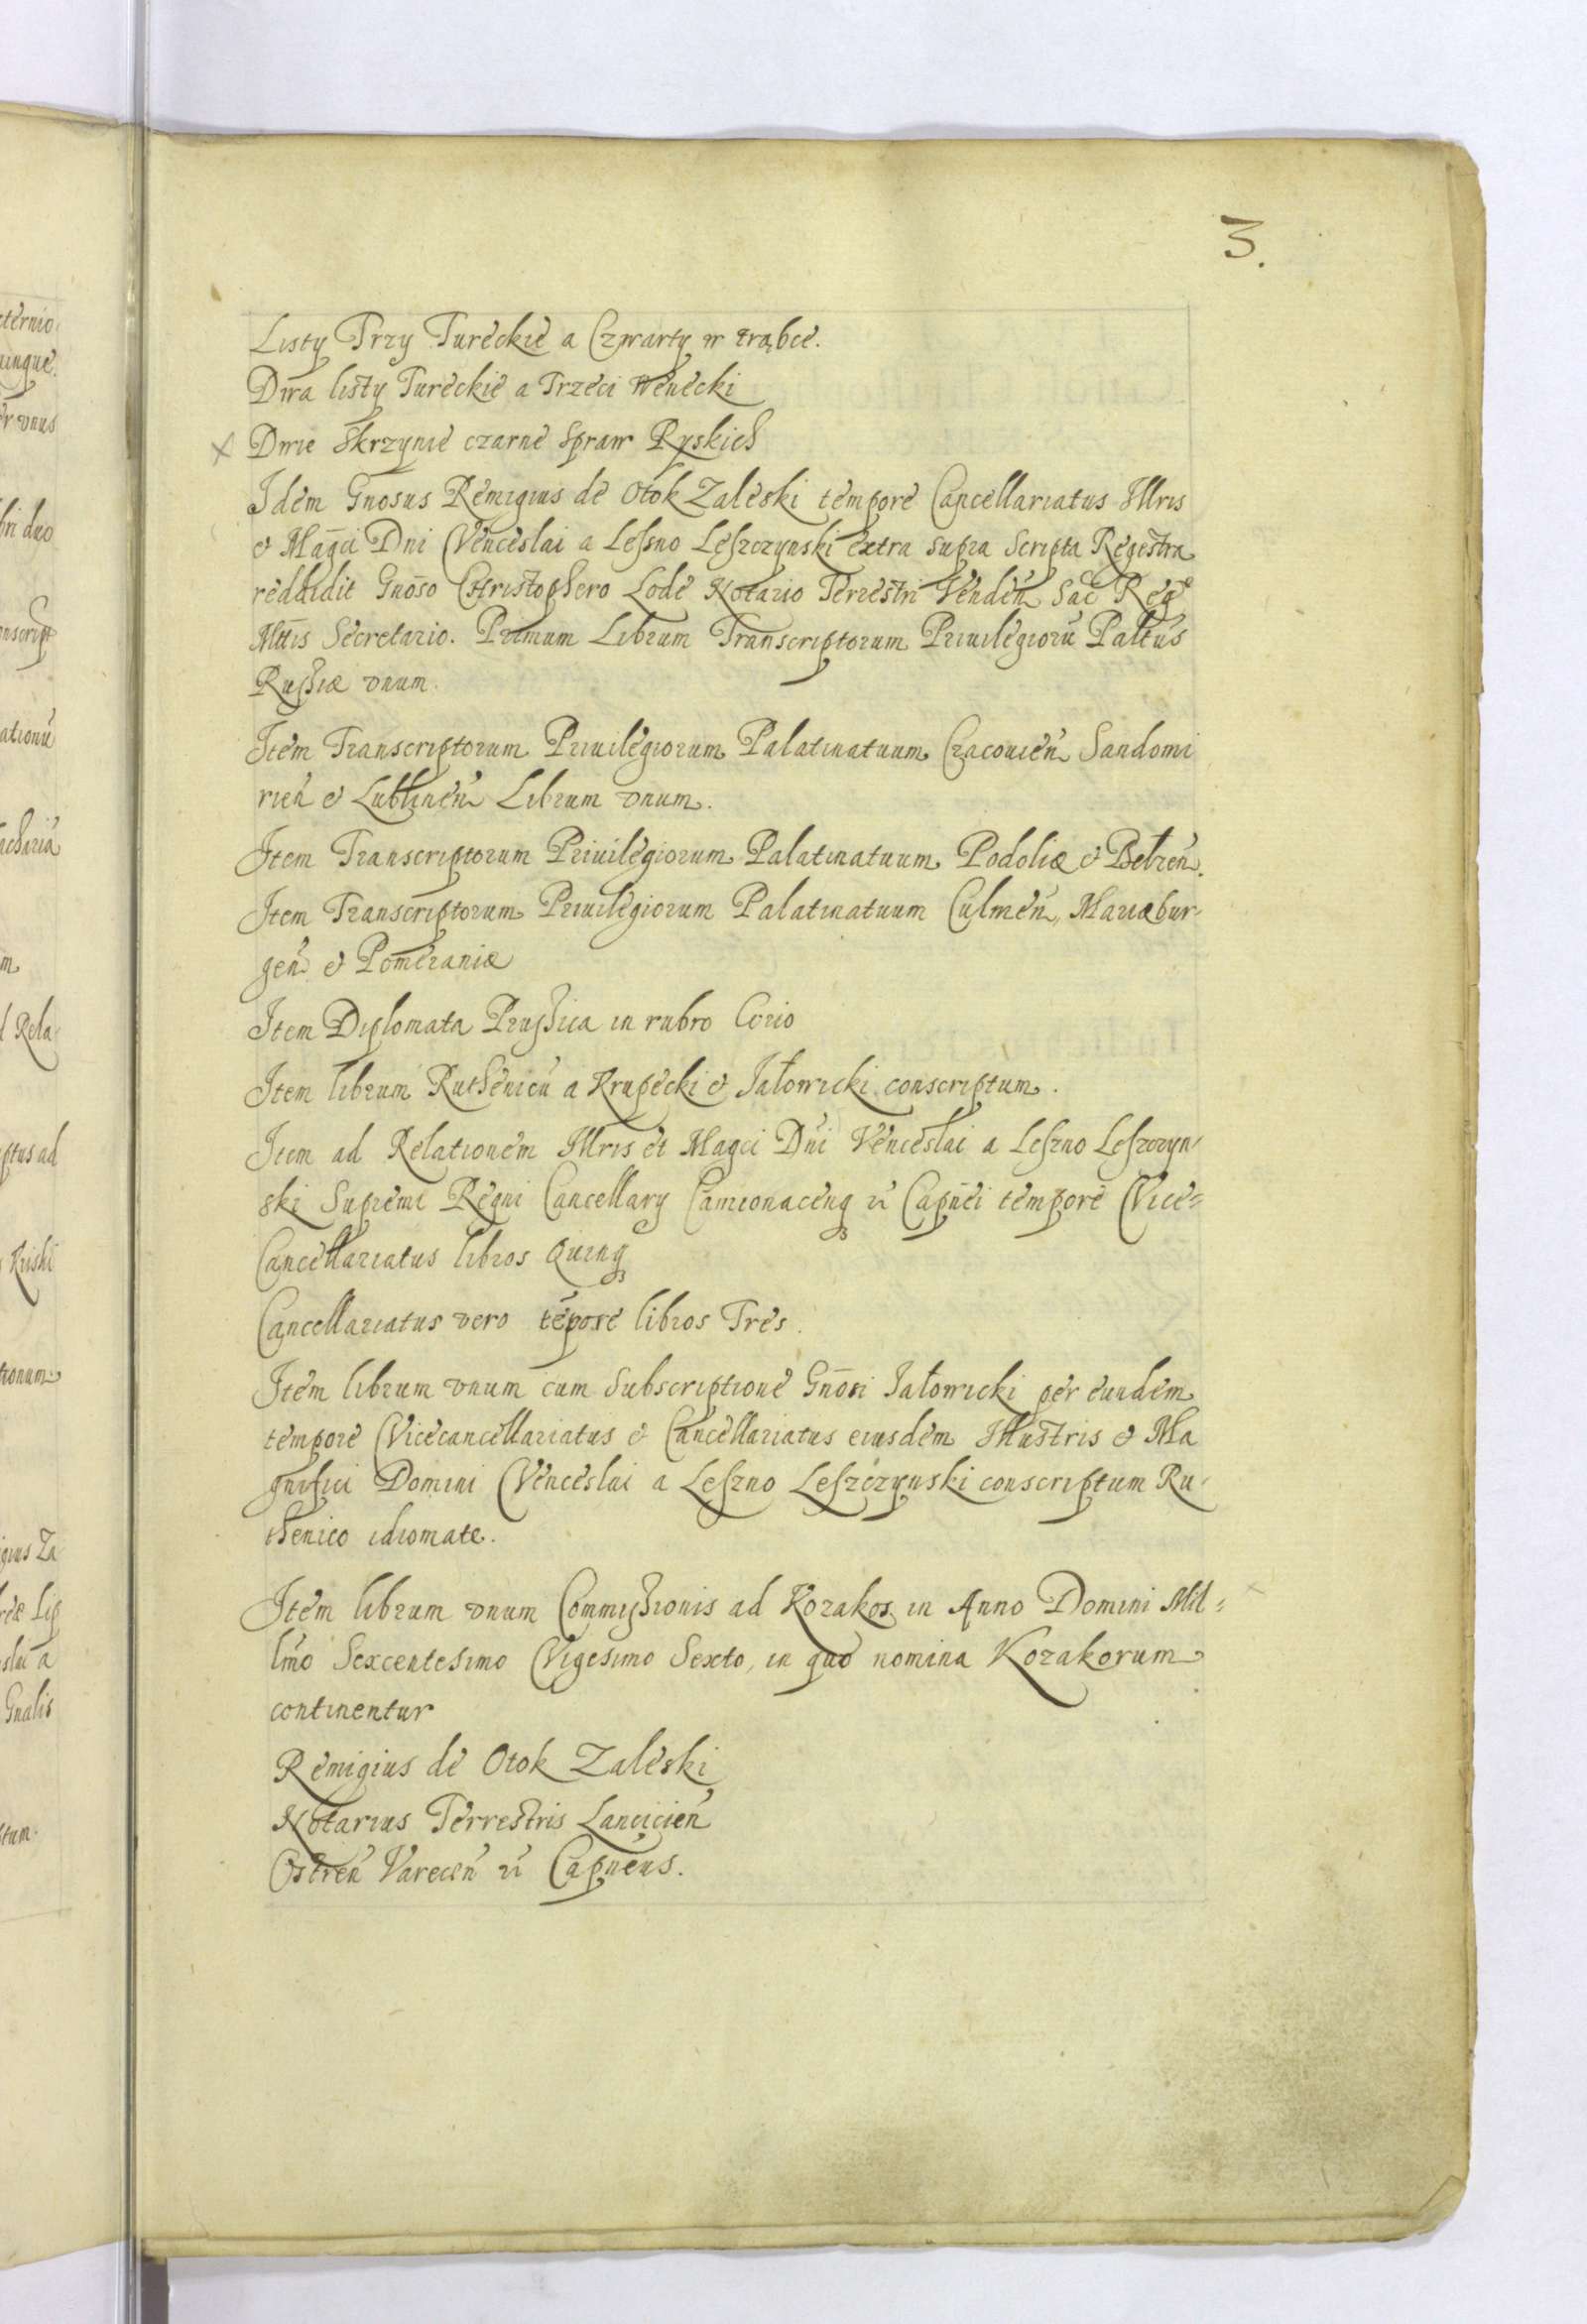 3.
Listy Trzy Tureckie a Czwarty w trąbce.
Dwa listy Tureckie a Trzeci Wenecki
× Dwie Skrzynie czarne Spraw Ryskich
Idem Gnosus Remigius de Otok Zaleski tempore Cancellariatus Illris
et Magci Dni Venceslai a Lessno Leszczynski extra supra Scripta Regestra
reddidit Gnoso Christophero Lode Notario Terrestri Venden Sac Reg
Mttis Secretario. Primum Librum Transcriptorum Priuilegioru Paltus
Russiæ vnum.
Item Transcriptorum Priuilegiorum Palatinatuum Cracouien Sandomi
rien et Lublinen Librum vnum.
Item Transcriptorum Priuilegiorum Palatinatuum Podoliæ et Belzen.
Item Transcriptorum Priuilegiorum Palatinatuum Culmen, Mariæbur-
gen et Pomeraniæ
Item Diplomata Prussica in rubro Corio
Item librum Ruthenicu a Krupecki et Jałowicki conscriptum.
Item ad Relationem Illris et Magci Dni Venceslai a Leszno Leszczyn-
ski Supremi Regni Cancellary Camionacenq Capnei tempore Vice=
Cancellariatus libros Quinq
Cancellariatus vero tepore libros Tres.
Item librum vnum cum Subscriptione Gnosi Jałowicki per eundem
tempore Vicecancellariatus et Cancellariatus eiusdem Illustris et Ma
gnifici Domini Venceslai a Leszno Leszczynski conscriptum Ru-
thenico idiomate.
Item librum vnum Commissionis ad Kozakos in Anno Domini Mil=
lmo Sexcentesimo Vigesimo Sexto, in quo nomina Kozakorum
continentur
Remigius de Otok Zaleski
Notarius Terrestris Lancicien
Ostren Varecen Capneus.